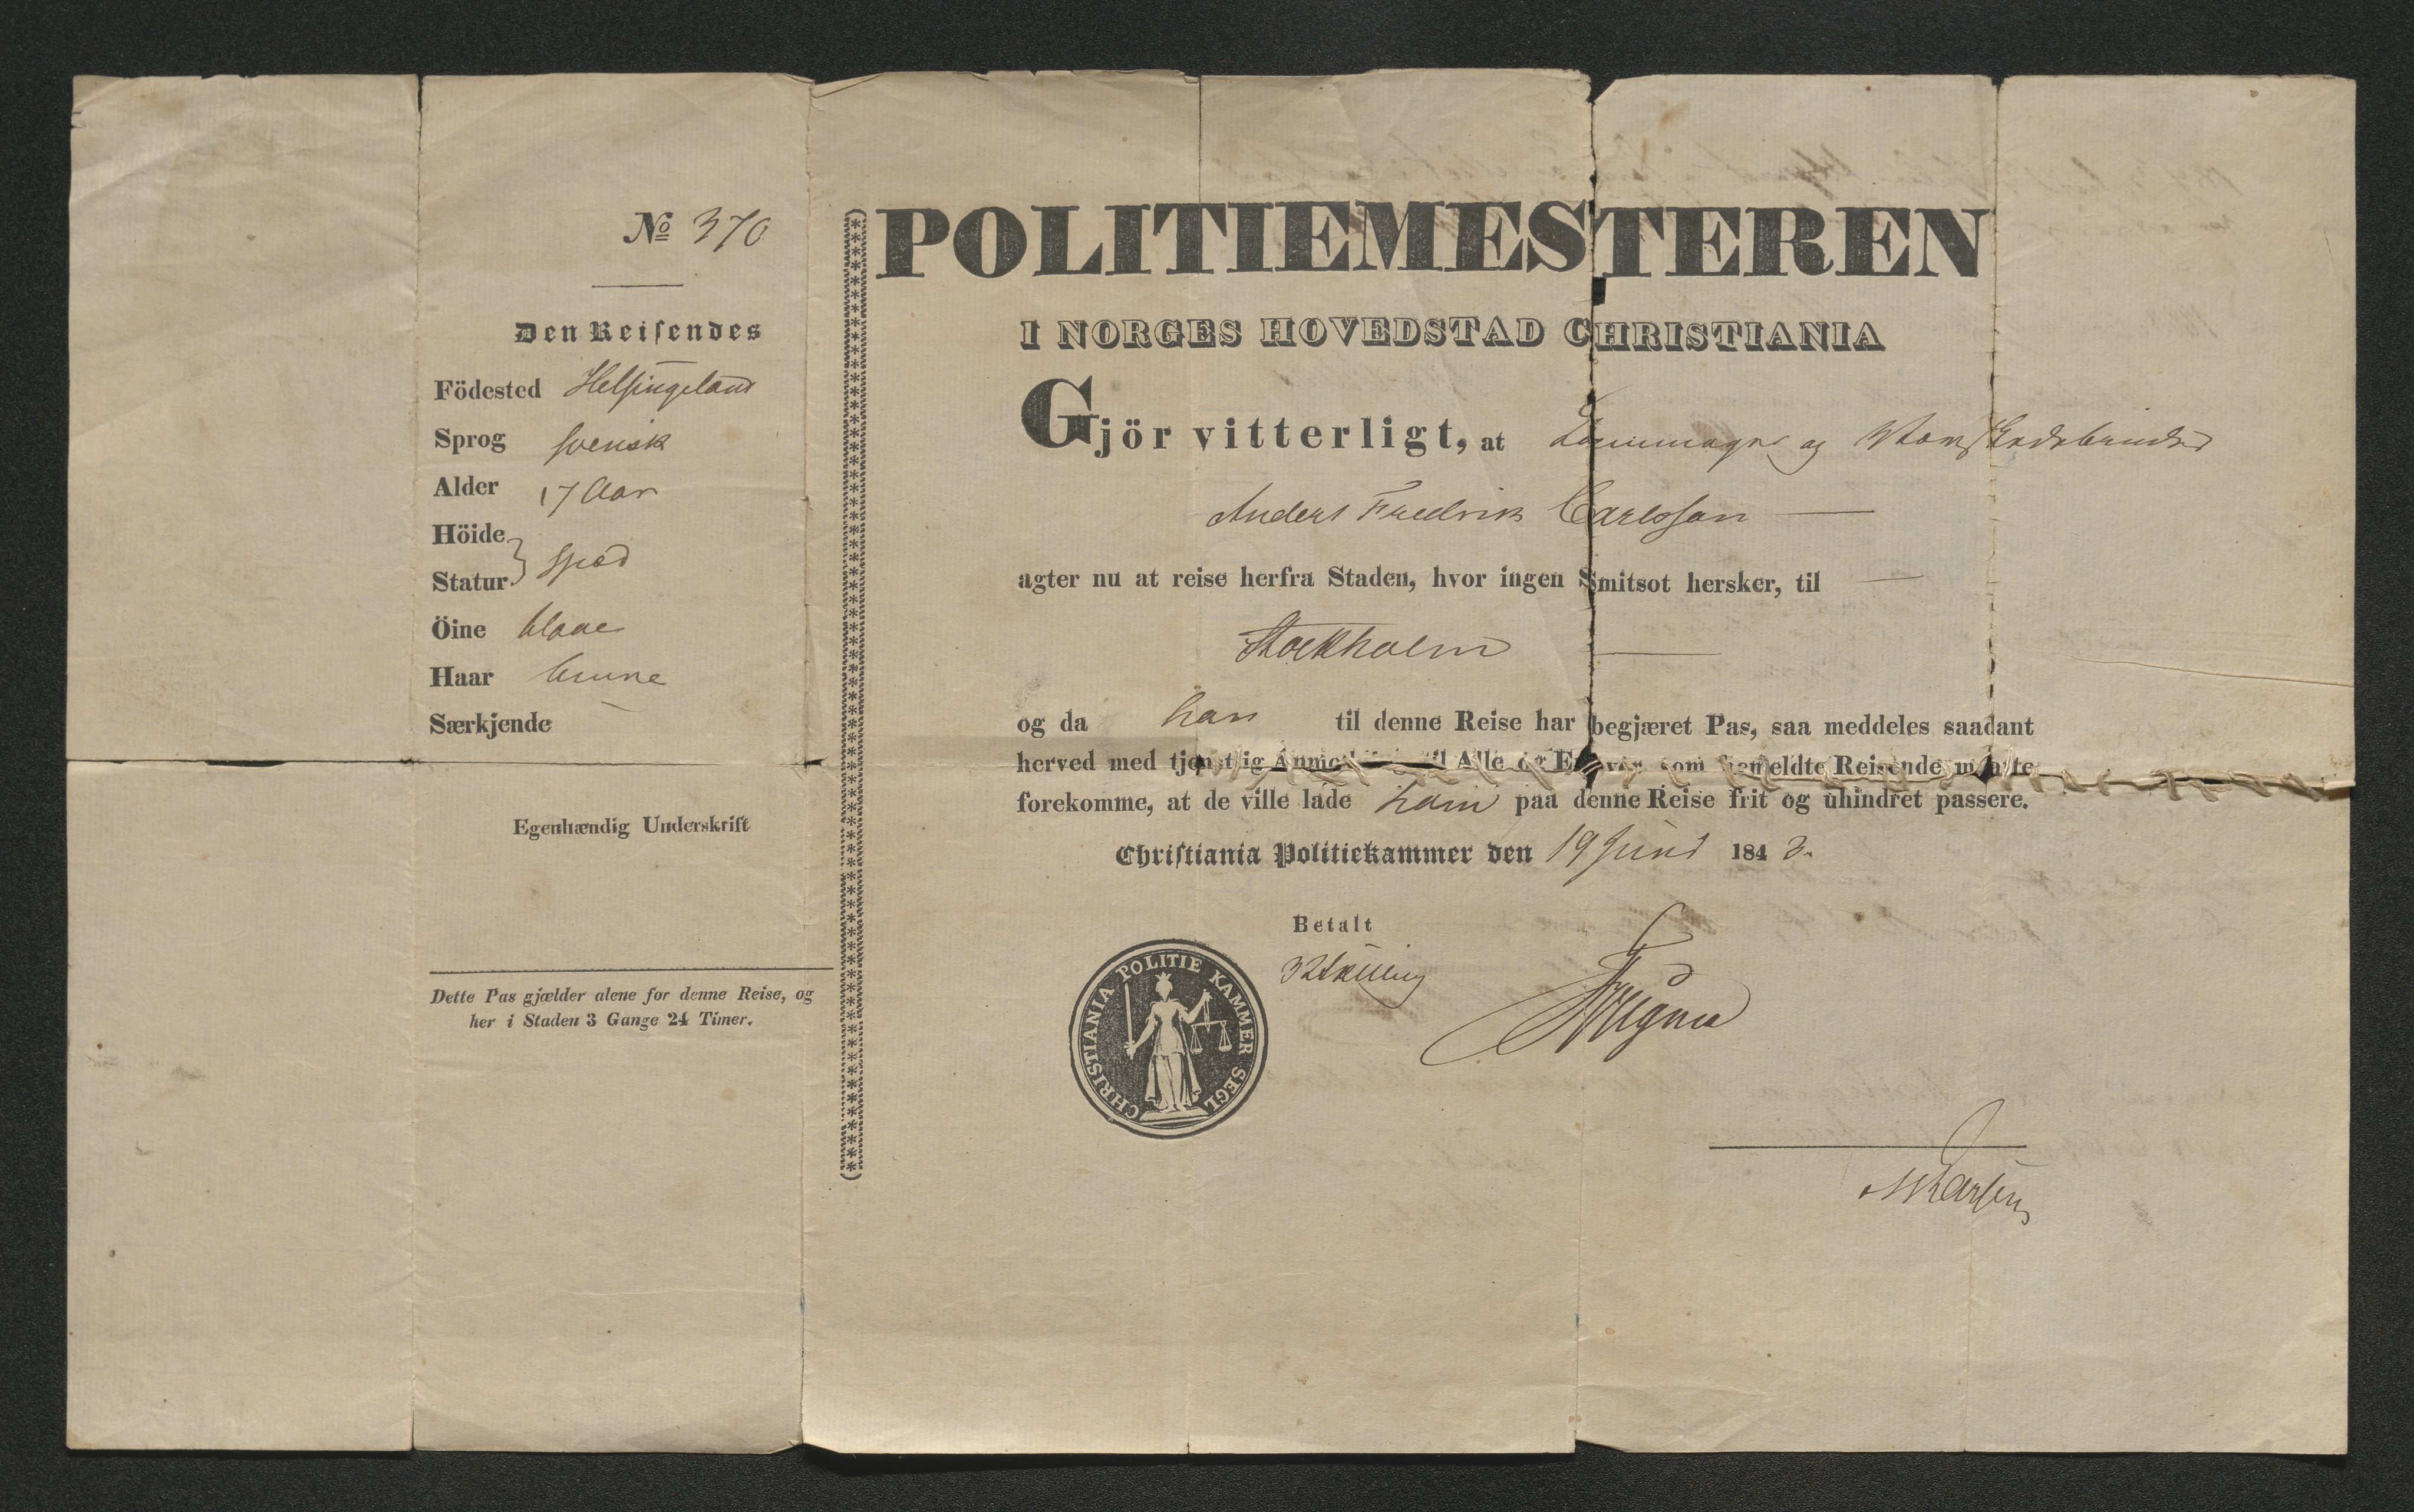 No 370
Den Reisendes
Födested Helsingeland
Sprog svensk
Alder 17 Aar
Höide
Statur spæd
Öine blaae
Haar brune
Særkjende —
Egenhændig Underskrift
Dette Pas gjælder alene for denne Reise, og
her i Staden 3 Gange 24 Timer.
POLITIEMESTEREN
I NORGES HOVEDSTAD CHRISTIANIA
Gjör vitterligt, at og
Anders Fredrik Carlsson —
agter nu at reise herfra Staden, hvor ingen Smitsot hersker, til —
Stockholm —
og da han til denne Reise har begjæret Pas, saa meddeles saadant
herved med tjenstlig til Alle og Enhver, som bemeldte Reisende maatte
forekomme, at de ville lade ham paa denne Reise frit og uhindret passere.
Christiania Politiekammer den 19 Juni 1843.
Betalt
32 skilling
CHRISTIANIA POLITIE KAMMER SEGL